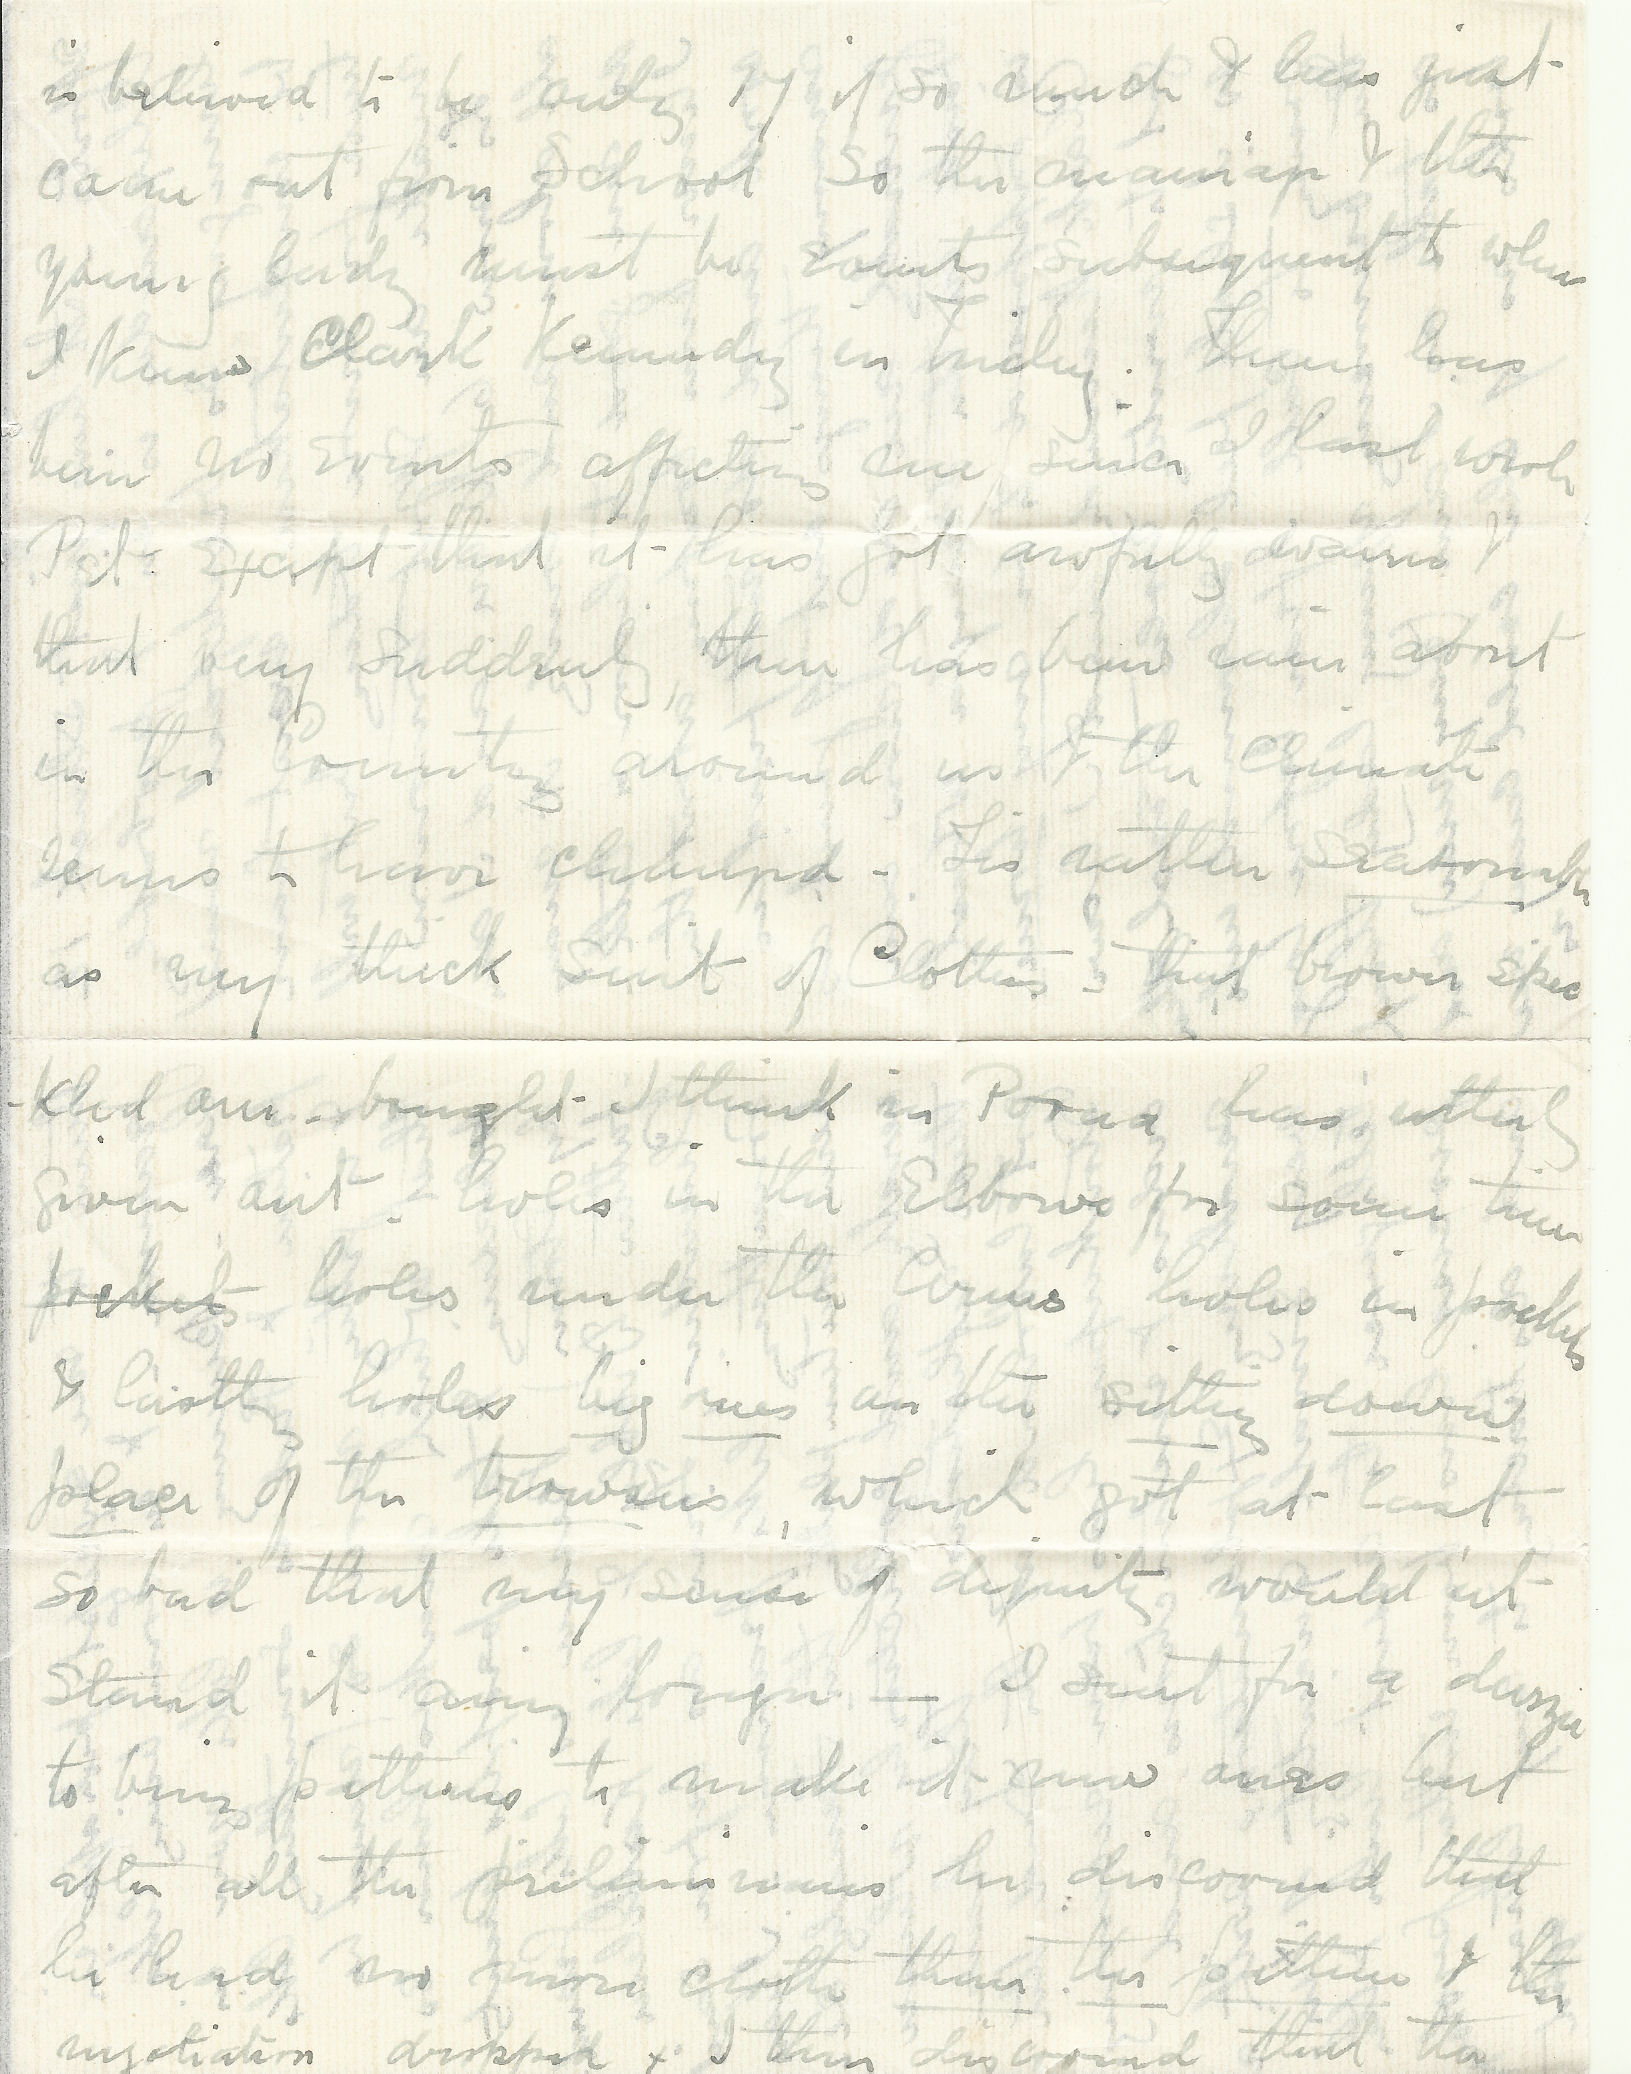 is believed to be only 17 if so much & has just
came out from School So the marriage & the
young lady must be Events subsequent to when
I knew Clark Kennedy in Indy. There has
been no Events affecting me since I last wrote
Pet except that it has got awfully warm &
that very suddenly, there has been rain about
in the Country around us & the Climate
seems to have changed - Tis rather Seasonable
as my thick Suit of Clothes - that brown spec
-kled one - bought I think in Poona has utterly
given out - holes in the Elbows for some time
pockets holes under the Arms holes in pockets
& lastly holes big ones on the sitting down
place of the trowsers, which got at last
so bad that my sense of dignity would'nt
stand it any longer — I sent for a
to bring patterns to make it new ones but
after all the preliminaries he discovered that
he had no more cloth than the pattern & the
negotiation dropped & I then discovered that the